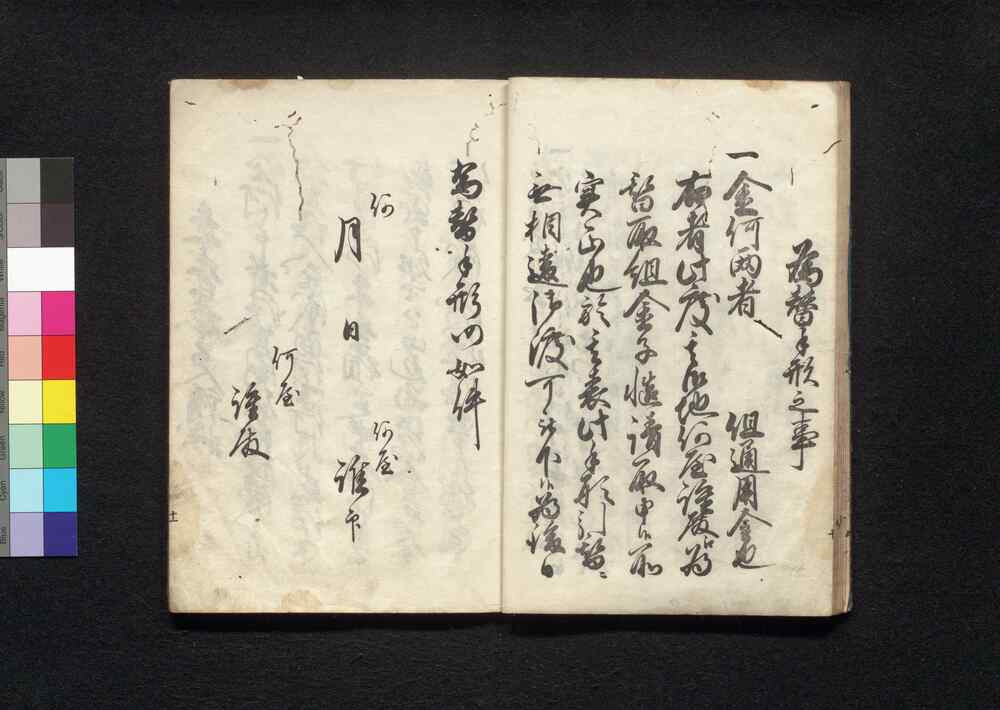 為替手形之事
一金何両者 但通用金也
右者此度其御地何屋誰殿ゟ為
替取組金子慥請取申候所
実正也於其表此手形引替ニ
無相違御渡可被下候為後日
為替手形仍如件
何
月 日 何屋 誰印
何屋
誰殿
十
十一